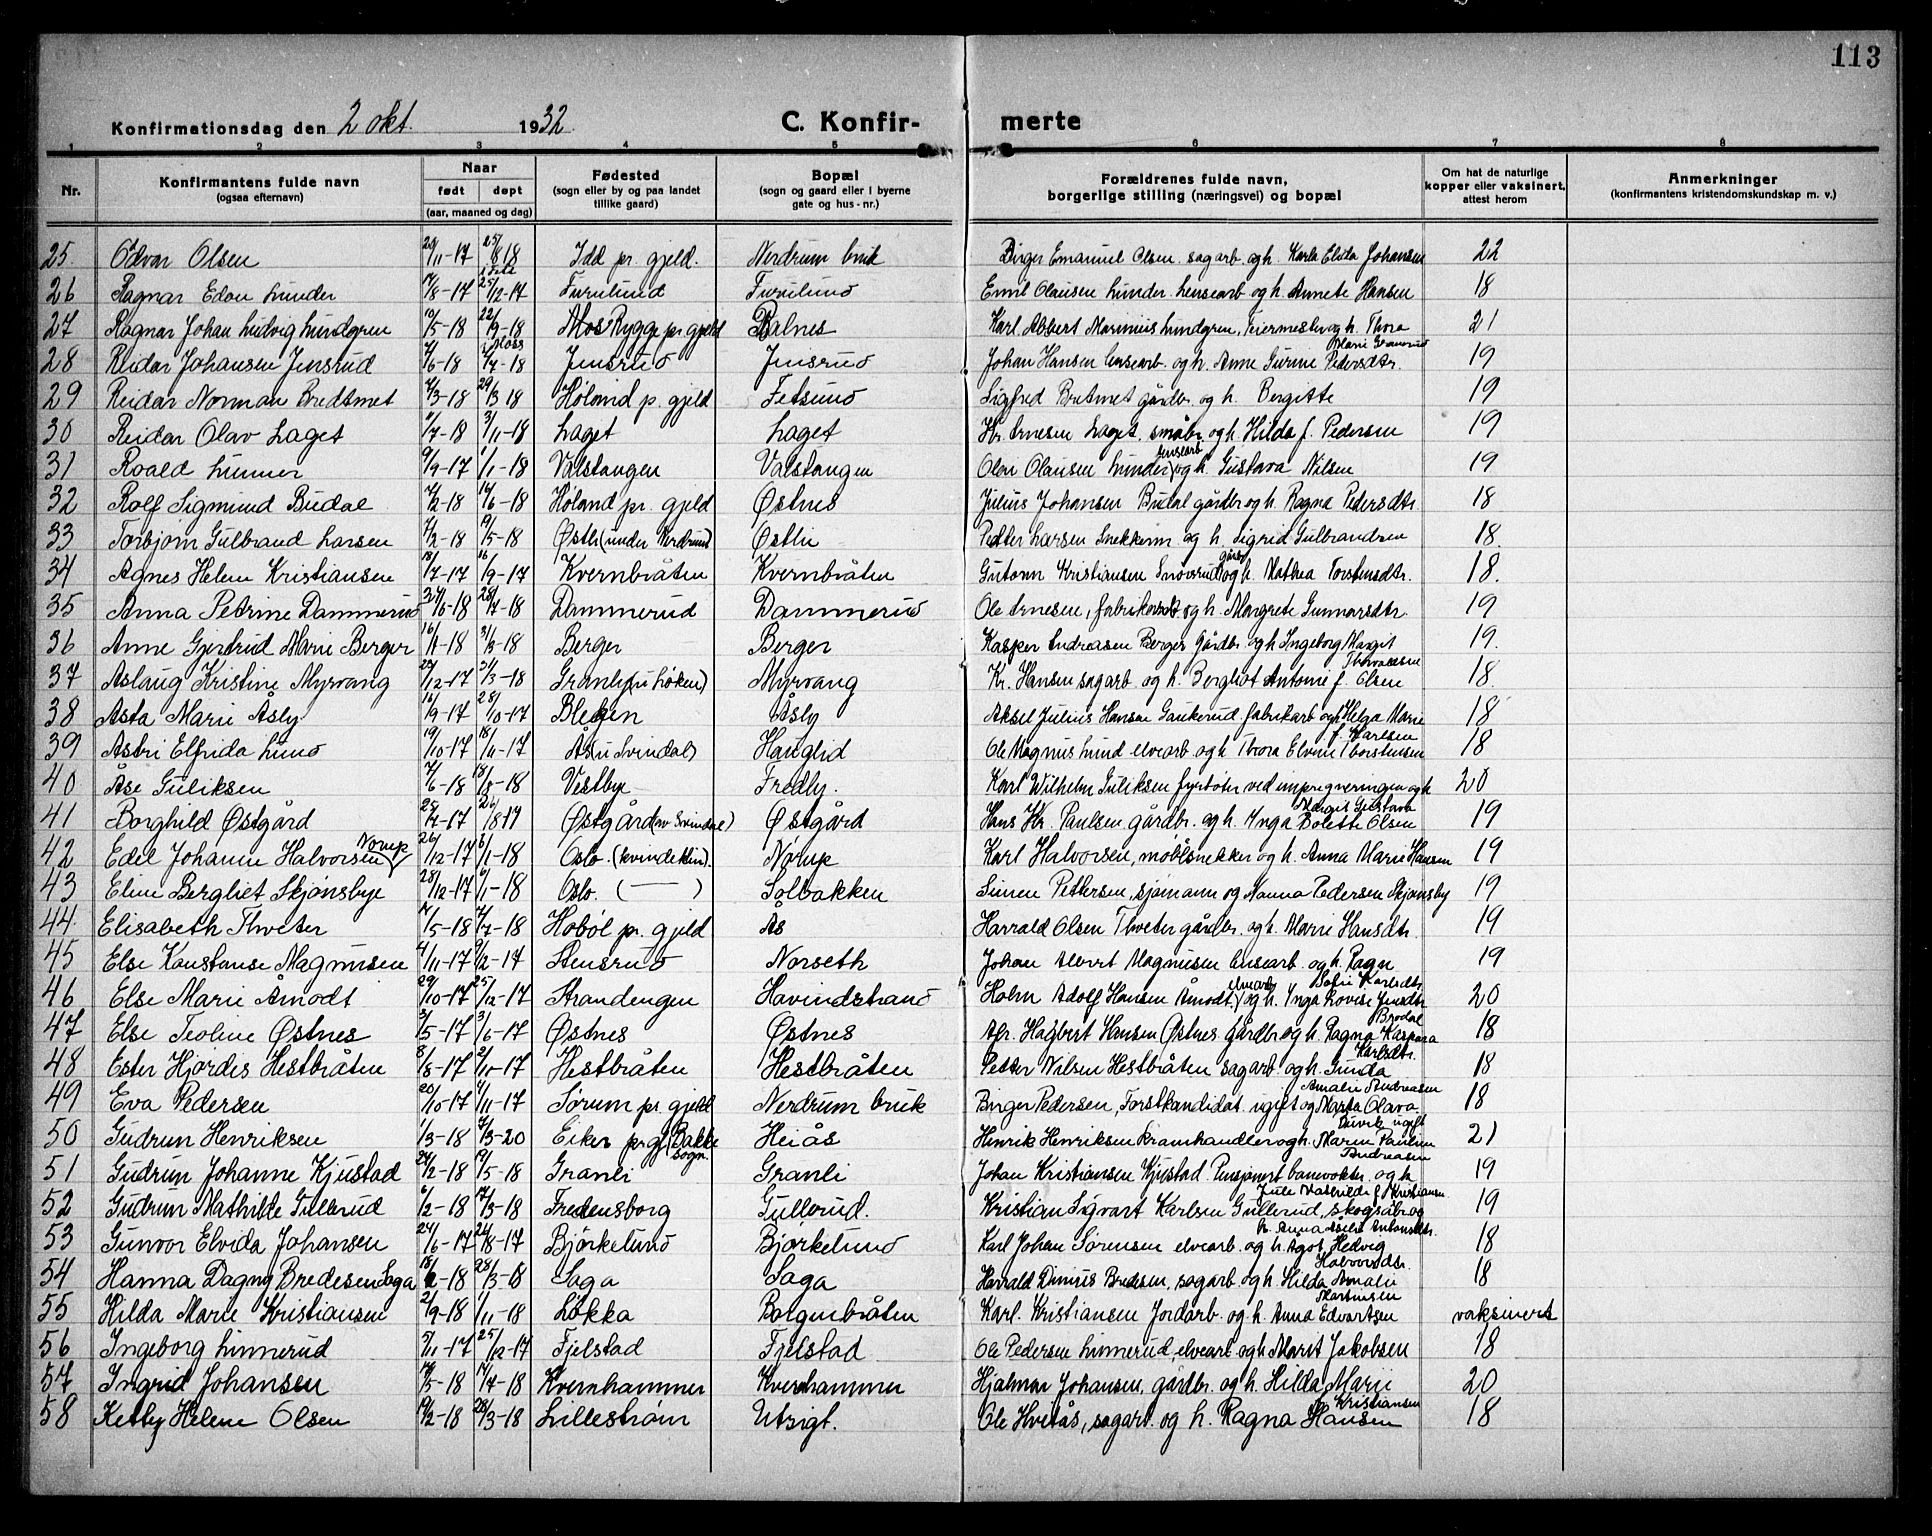 113
Konfirmationsdag den 2 okt. 1932. C. Konfir- merte
1 2 3 4 5 6 7 8
Nr. Konfirmantens fulde navn (ogsaa efternavn) Naar født døpt (aar, maaned og dag) Fødested (sogn eller by og paa landet tillike gaard) Bopæl (sogn og gaard eller i byerne gate og hus-nr.) Forældrenes fulde navn, borgerlige stilling (næringsvei) og bopæl Om hat de naturlige kopper eller vaksinert, attest herom Anmerkninger (konfirmantens kristendomskundskap m. v.)
25. Odvar Olsen 20/11-17 25/8 18 Idd pr. gjeld. Nerdrum bruk Birger Emanuel Olsen sagarb. og h. Karla Elida Johansen 22
26 Ragnar Edon Lunder 14/8-17 25/12-17 Furulund Furulund Emil Olausen Lunder lensearb og h. Annete Hansen 18
27 Ragnar Johan Ludvig Lundgren 10/5-18 22/9-18 Mos Rygge pr gjeld Balnes Karl Albert Marinius Lundgren, Feiermester og h. Thora Marie 21
28 Reidar Johansen Jensrud /6-18 /7-18 Jensrud Jensrud Johan Hansen lensearb. og h. Anne Gurine Pedersdtr. 19
29 Reidar Norman Bredtmet /3-18 29/3 18 Høland p. gjeld Fetsund Sigfred Bretmet gårdbr. og h. Bergitte 19
30 Reidar Olav Laget /7-18 3/11-18 Laget Laget Kr. Arnesen Laget. småbr. og h. Hilda f. Pedersen 19
31 Roald Lunner 9/9-17 1/1-18 Valstangen Valstangen Olav Olausen Lunder lensearb og h. Gustava Nilsen 19
32 Rolf Sigmund Budal /2-18 16/6-18 Høland pr. gjeld Østnes Julius Johansen Budal gårdbr og h. Ragna Pedersdtr. 18
33 Torbjørn Gulbrand Larsen /2-18 19/5-18 Østli (under Nerdrum) Østli Petter Larsen Snekkerm og h. Sigrid Gulbrandsen 18.
34 Agnes Helene Kristiansen 18/7-17 16/9-17 Kvernbråten Kvernbråten Gutorm Kristiansen Snoverud gårdbr og h. Mathea Torstensdtr. 18.
35 Anna Petrine Dammerud /6-18 28/7-18 Dammerud Dammerud Ole Arnesen, fabrikarb og h. Margrete Gunnarsdtr. 19
36 Anne Gjertrud Marie Berger 16/1-18 31/3-18 Berger Berger Kasper Andreasen Berger Gårdbr. og h Ingeborg Margit 19.
37 Aslaug Kristine Myrvang 25/12-17 31/3-18 Granly (u Løken) Myrvang Kr. Hansen sagarb og h. Bergliot Antonie f. Olsen 18.
38 Asta Marie Åsly 16/9-17 28/10-17 Blegen Åsly Aksel Julius Hansen Gaukerud fabrikarb og h Helga Marie f. Karlsen 18
39 Astri Elfrida Lund 19/10-17 18/6-17 Ås (u Svindal) Hauglid Ole Magnus Lund elvearb og h Thora Elvine Thorstensen 18
40 Åse Guliksen /6-18 18/8-18 Vestbye Fredly. Karl Wilhelm Guliksen fyrbøter ved impregneringen og h Margit Gustava 20
41 Borghild Østgård 25/7-17 26/8 17 Østgård (av Svindal) Østgård Hans Kr. Paulsen gårdbr. og h. Inga Bolette Olsen 19
42 Edel Johanne Halvorsen Norup 26/12-17 6/1-18 Oslo. (kvindeklin). Norup Karl Halvorsen, møbelsnekker og h. Anna Marie Hansen 19
43 Eline Bergliet Skjønsbye 28/12-17 6/1-18 Oslo. ( — ) Solbakken Simen Pettersen, sjømann og Nanna Pedersen Skjønsby 19
44 Elisabeth Thveter /5-18 /7-18 Hobøl pr. gjeld Ås Harrald Olsen Thveter gårdbr. og h. Marie Hansdtr. 19
45 Else Konstanse Magnusen 4/11-17 9/12-17 Stensrud Norseth Johan Magnusen lensearb. og h. Ragn Sofie Karlsdtr. 19
46 Else Marie Åmodt 29/10-17 25/12-17 Strandengen Havindstrand Holm Adolf Hansen Åmodt, elvearb og h. Ynga Lovise 20
47 Else Teoline Østnes 3/5-17 3/6-17 Østnes Østnes Hagbert Hansen Østnes gårdbr og h. Ragna Kaspara Brødal 18
48 Ester Hjørdis Hestbråten 8/8-17 2/10-17 Hestbråten Hestbråten Petter Nilsen Hestbråten sagarb og h. Gunda Karlsdtr. 18
49 Eva Pedersen 20/10-17 4/11-17 Sørum pr. gjeld Nerdrum bruk Birger Pedersen, Forstkandidat ugift og Marta Olava Amalie Andreasen 18
50 Gudrun Henriksen 1/3-18 7/3-20 Eiker pr gj (Bakke sogn. Heiås Henrik Henriksen Kramhandler og h. Maren Pauline Andreasen 21
51 Gudrun Johanne Kjustad 24/2-18 19/5-18 Granli Granli Johan Kristiansen Kjustad Pensjonert banevokter og h. Jule Mathilde f. Kristiansen 19
52 Gudrun Mathilde Gullerud 6/2-18 17/3-18 Fredensborg Gullerud. Kristian Sigvart Karlsen Gullerud, skogsarb og h. Anna 19
53 Gunvor Elvida Johansen 24/6-17 24/8-17 Bjørkelund Bjørkelund Karl Johan Sørensen elvearb. og h. Agot Hedvig Halvorsdtr. 18
54 Hanna Dagny Bredesen Saga 18/2-18 28/3-18 Saga Saga Harrald Dinius Bredesen, sagarb og h. Hilda Amalie Martinsen 18
55 Hilda Marie Kristiansen 2/9-18 1/11-18 Løkka Borgenbråten Karl. Kristiansen Jordarb. og h. Anna Edvartsen vaksinert
56 Ingeborg Linnerud 5/11-17 25/12-17 Fjelstad Fjelstad Ole Pedersen Linnerud, elvearb og h Marit Jakobsen 18
57 Ingrid Johansen /3-18 14/4-18 Kvernhammer Kvernhammer Hjalmar Johansen, gårdbr. og h. Hilda Marie Kristiansen 20
58 Ketty Helene Olsen /2-18 28/3-18 Lillestrøm Utsigt. Ole Hvetås, sagarb. og h. Ragna Hansen 18